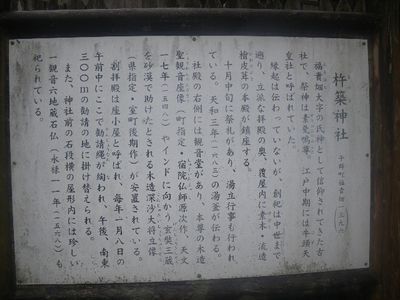 杵築神社
福貴畑大字の氏神として信仰されてきた古
社で、祭神は素戔嗚尊、江戸中期には牛頭天
皇社と呼ばれていた。
縁起は伝わっていないが、創祀は中世まで
遡り、立派な拝殿の奥、覆屋内に素木・流造
檜皮葺の本殿が鎮座する。
十月中旬に祭礼があり、湯立行事も行われ
ている。天和三年(一六八三)の湯釜が伝わる。
社殿の右側には観音堂があり、本尊の木造
聖観音座像(町指定・宿院仏師源次作、天文
十七年(一五四八)やインドに向かう玄奘三蔵
を砂漠で助けたとされる木造深沙大将立像
(県指定・室町後期作)が安置されている。
割拝殿は座小屋と呼ばれ、毎年一月八日の
午前中にここで勧請縄が綯われ、午後、南東
三〇〇mの勧請の地に掛け替えられる。
また、神社前の石段横の屋形内には珍しい
一観音六地蔵石仏(永禄十一年(一五六八)も
祀られている。